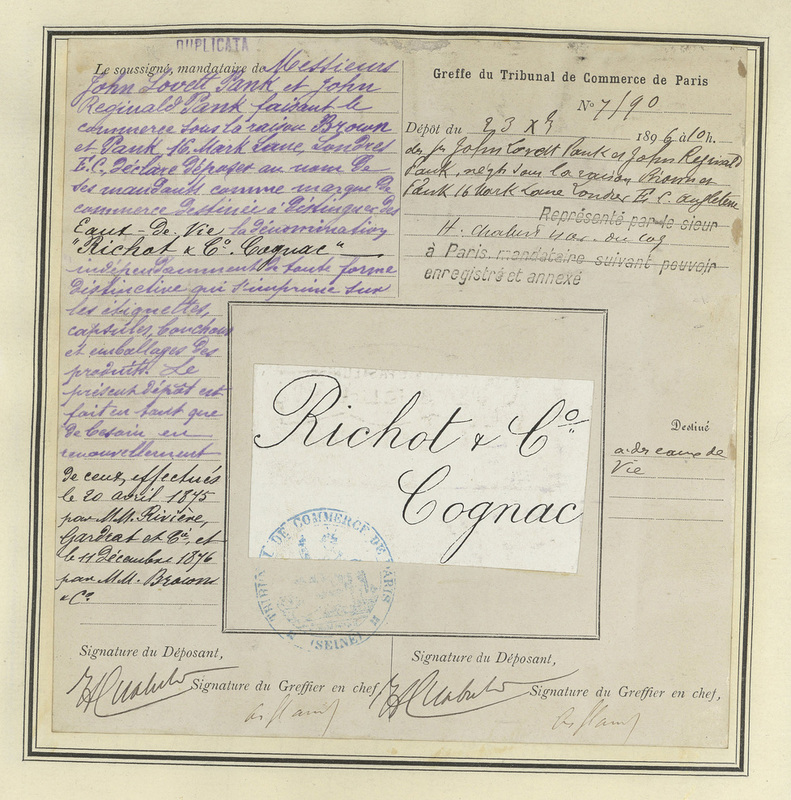 DUPLICATA
Le soussigné, mandataire de Messieurs
John Lovett Pank et John
Reginald Pank faisant le
commerce sous la raison Brown
et Pank 16, Mark Lane, Londres
E.C., déclare déposer au nom de
ses mandants comme marque de
commerce destinée à distinguer des
Eaux-De-Vie la dénomination
"Richot & Cº. Cognac"
indépendamment de toute forme
distinctive qui s'imprime sur
les étiquettes,
capsules, bouchons
et emballages des
produits. Le
présent dépôt est
fait en tant que
de besoin en
renouvellement
de ceux effectués
le 20 avril 1875
par M.M. Rivière,
Gardrat et Cie, et
le 11 Décembre 1876
par M.M. Browne
& Cº
Greffe du Tribunal de Commerce de Paris
Nº 7/90
Dépôt du 23 Xb 1896 à 10 h.
des Srs John Lovett Pank et John Reginald
Pank, négts sous la raison Brown et
Pank 16 Mark Lane Londres E. C. angleterre
Représenté par le sieur
H. Chabert
à Paris, mandataire suivant pouvoir
enregistré et annexé
Richot & Cº
Cognac
TRIBUNAL DE COMMERCE DE PARIS
(SEINE)
Destiné
à des eaux de
Vie
Signature du Déposant,
Signature du Greffier en chef,
Signature du Déposant,
Signature du Greffier en chef,